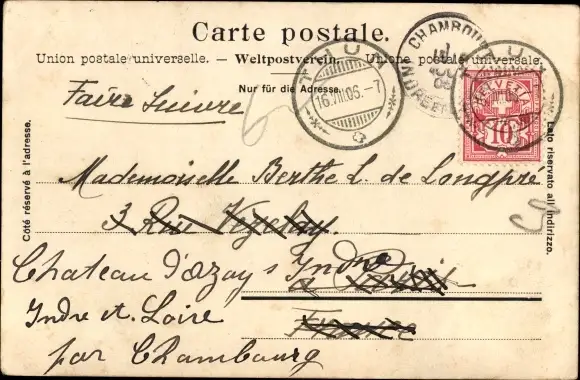 Carte postale.
Union postale universelle. — Weltpostverein. — Unione postale universale.
Nur für die Adresse.
Côté réservé à l'adresse.
Lato riservato all'indirizzo.
16.VII.06.-7
CHAMBOURG
HELVETIA
10
Faire Suivre
Mademoiselle Berthe L. de Longpré
3 Rue Vezelay.
Chateau d'Azay s Indre
Paris
Indre et Loire
France
par Chambourg